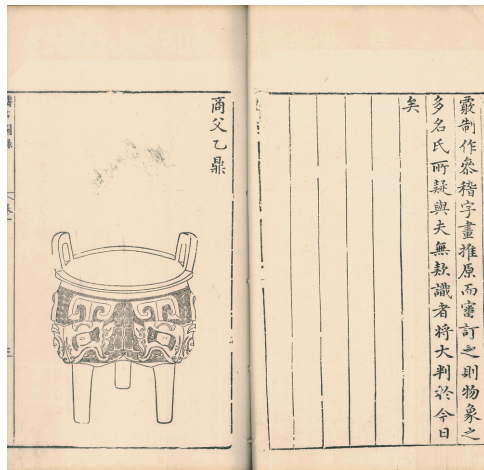 霰制作參稽字畫推原而審訂之則物象之
多名氏所疑與夫無欵識者將大判於今日
矣
商父乙鼎